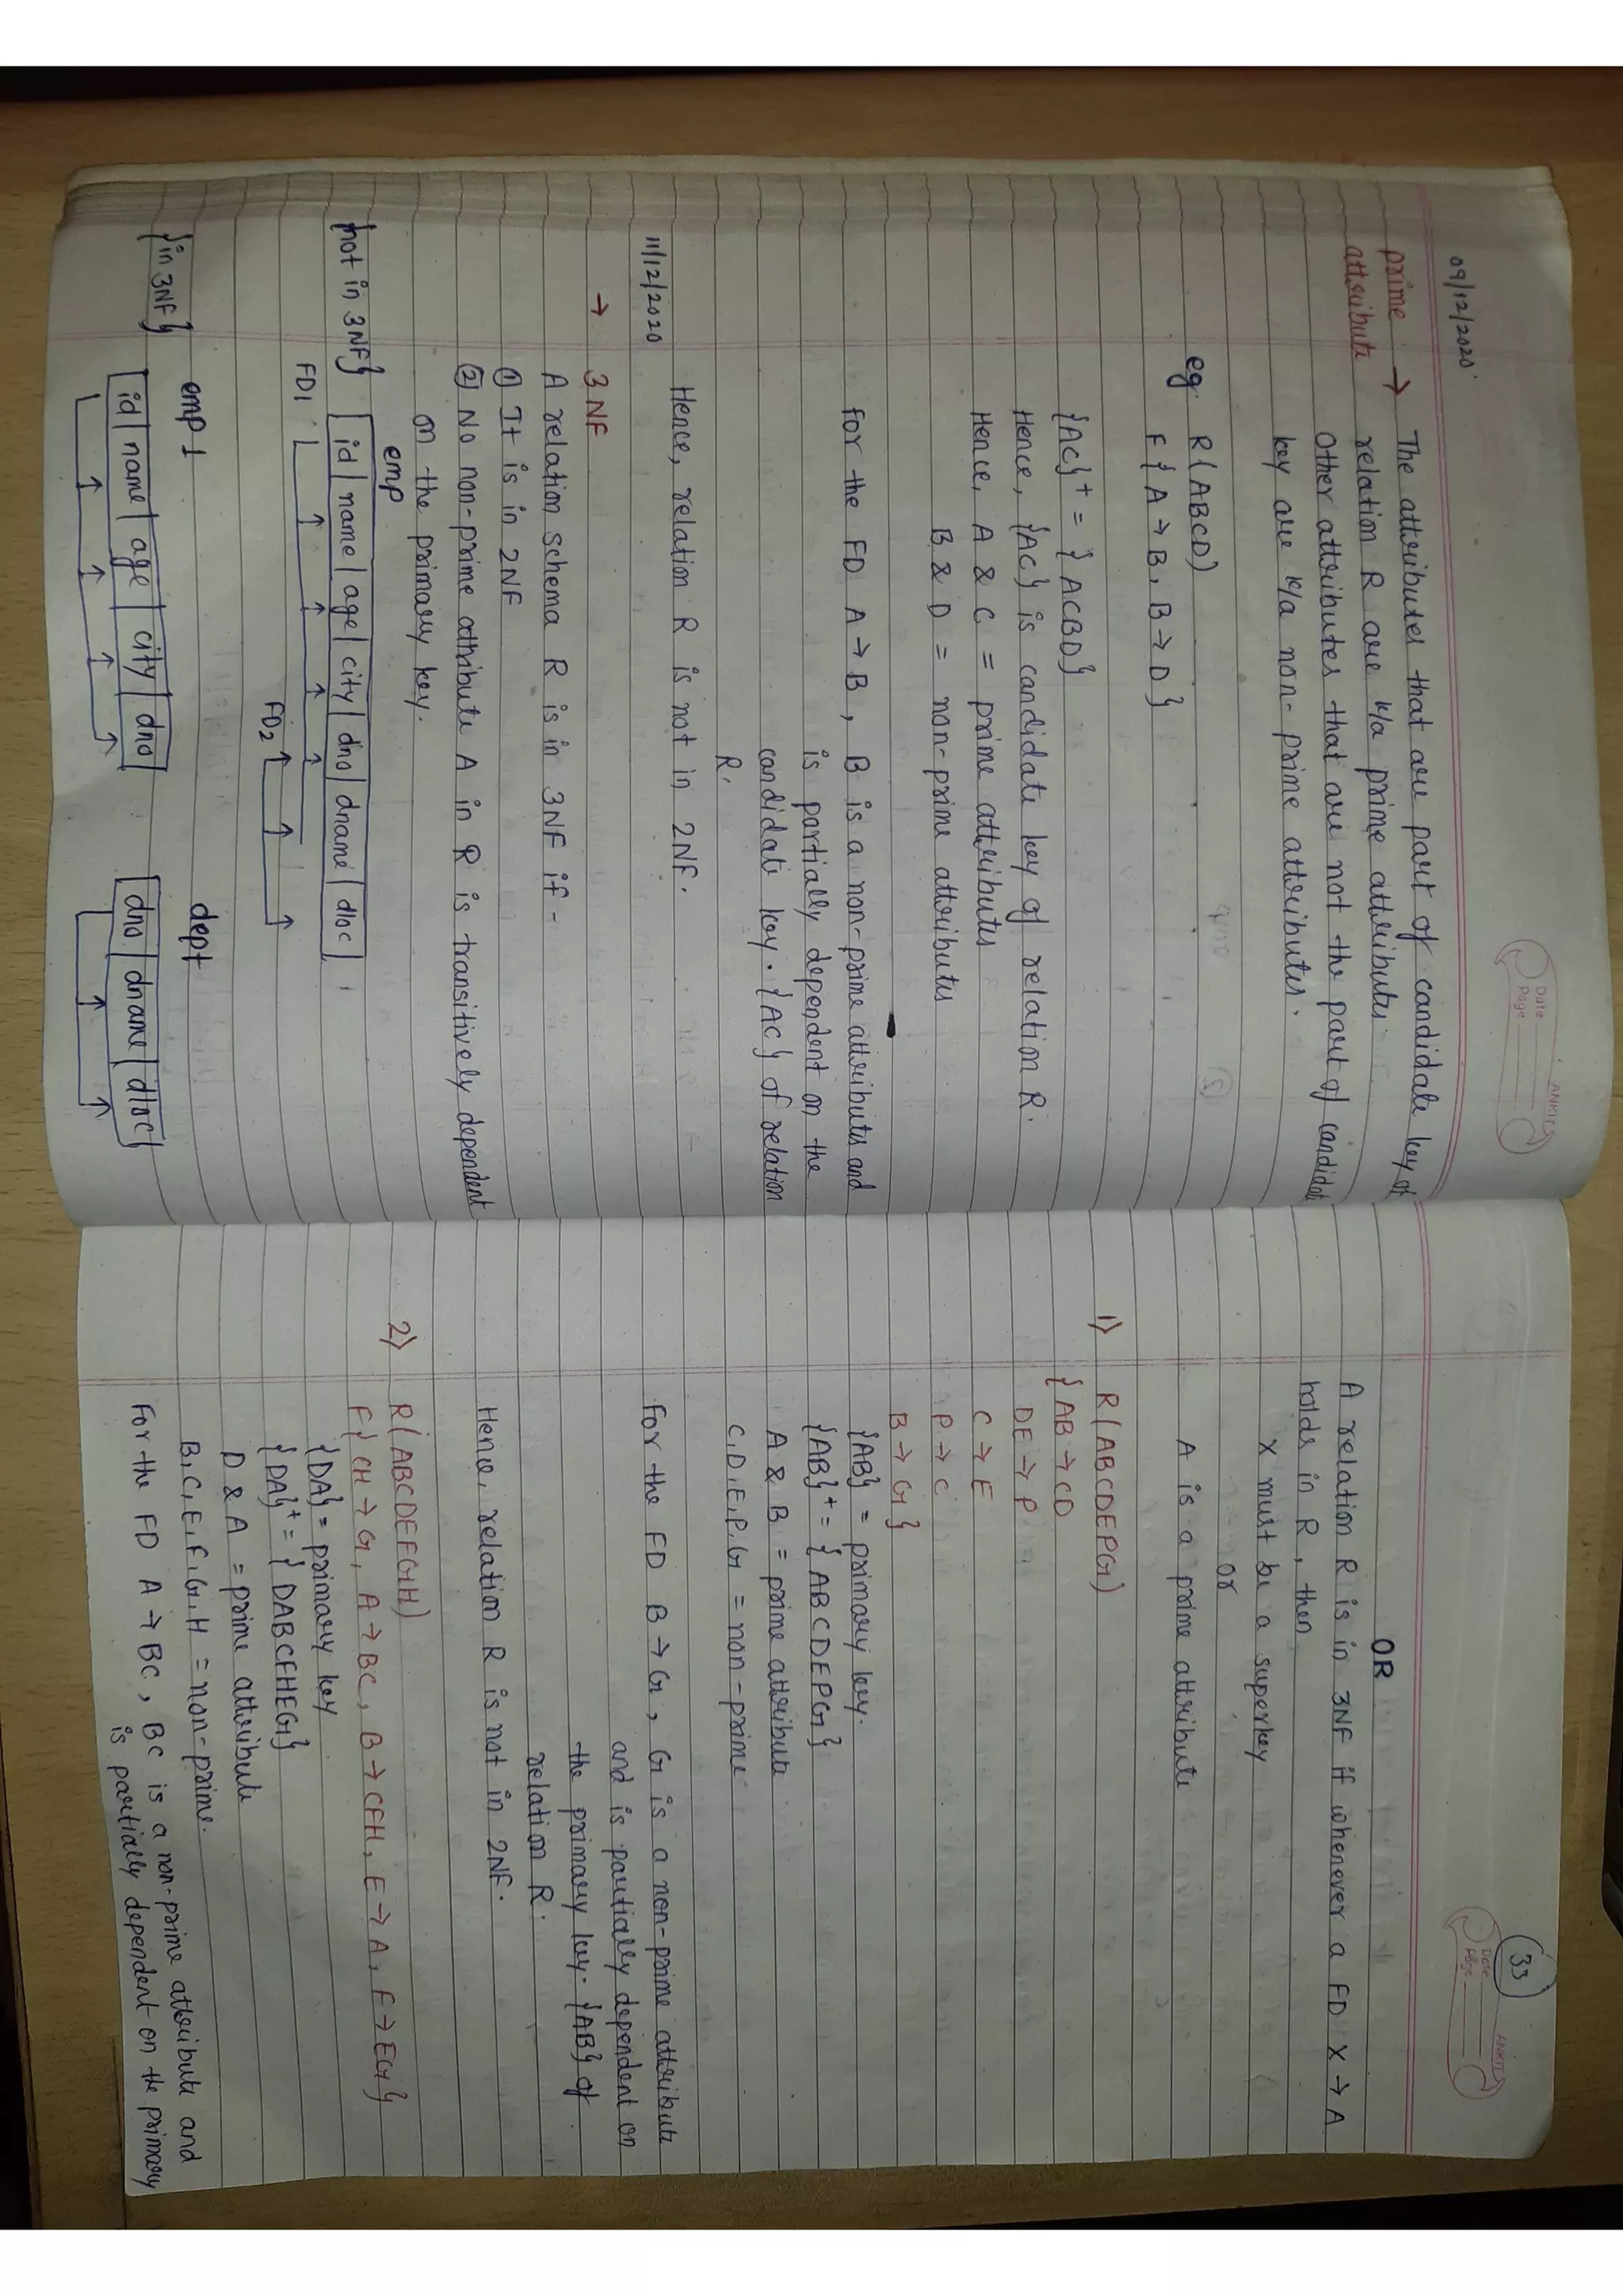 Date
Page
ANKIT
09/12/2020.
prime → The attributes that are part of candidate key of
attribute relation R are k/a prime attributes.
Other attributes that are not the part of candidate
key are k/a non-prime attributes.
eg R(ABCD)
F{A→B, B→D}
{AC}+ = {ACBD}
Hence, {AC} is candidate key of relation R.
Hence, A & C = prime attributes
B & D = non-prime attributes
for the FD A→B, B is a non-prime attributes and
is partially dependent on the
candidate key. {AC} of relation
R.
Hence, relation R is not in 2NF.
11/12/2020
→ 3NF
A relation schema R is in 3NF if -
① It is in 2NF
② No non-prime attribute A in R is transitively dependent
on the primary key.
emp
{not in 3NF} | id | name | age | city | dno | dname | dloc |
FD1
FD2
emp 1 dept
{in 3NF} | id | name | age | city | dno | | dno | dname | dloc |
33
Date
Page
ANKIT
OR
A relation R is in 3NF if whenever a FD X→A
holds in R, then
X must be a superkey
or
A is a prime attribute
1) R(ABCDEPG)
{AB→CD
DE→P
C→E
P→C
B→G}
{AB} = primary key.
{AB}+ = {ABCDEPG}
A & B = prime attribute
C,D,E,P,G = non-prime
For the FD B→G, G is a non-prime attribute
and is partially dependent on
the primary key. {AB} of
relation R.
Hence, relation R is not in 2NF.
2) R(ABCDEFGH)
F{CH→G, A→BC, B→CFH, E→A, F→EG}
{DA} = primary key
{DA}+ = {DABCFHEG}
D & A = prime attribute
B,C,E,F,G,H = non-prime.
For the FD A→BC, BC is a non-prime attribute and
is partially dependent on the primary